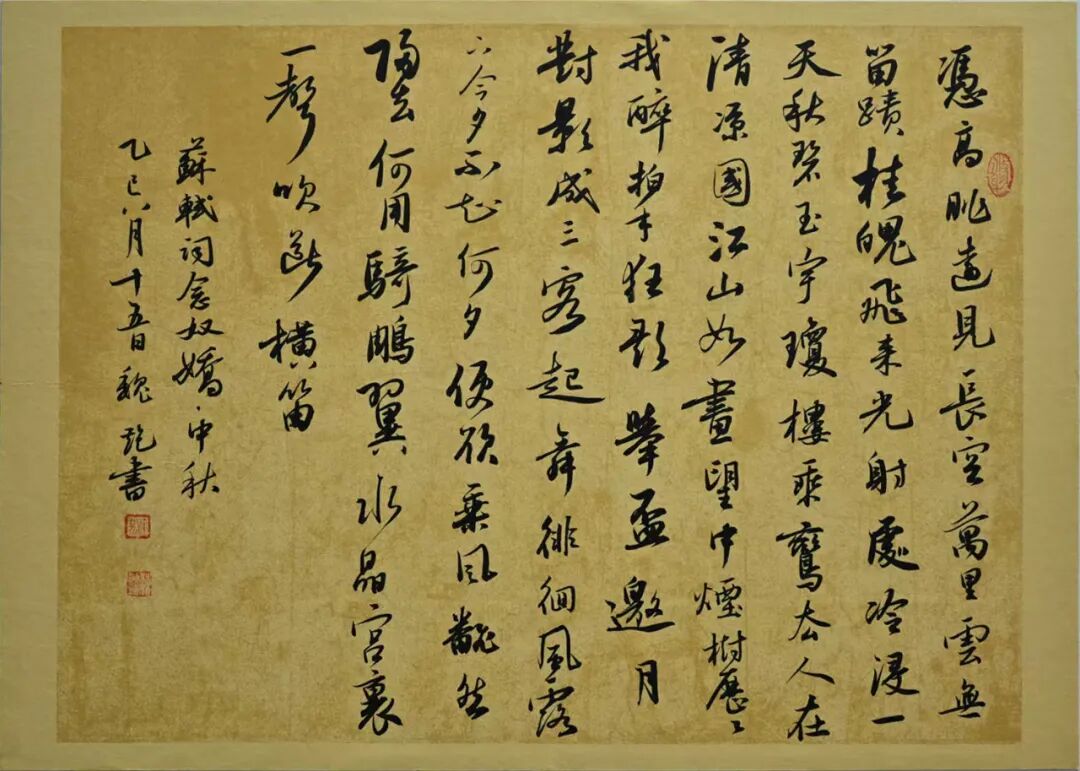 憑高眺遠見長空萬里雲無
留蹟桂魄飛來光射處冷浸一
天秋碧玉宇瓊樓乘鸞來去人在
清涼國江山如畫望中煙樹歷〻
我醉拍手狂歌舉盃邀月
對影成三客起舞徘徊風露
下今夕不知何夕便欲乘風翻然
歸去何用騎鵬翼水晶宮裏
一聲吹斷橫笛
蘇軾詞念奴嬌·中秋
乙巳八月十五日魏書